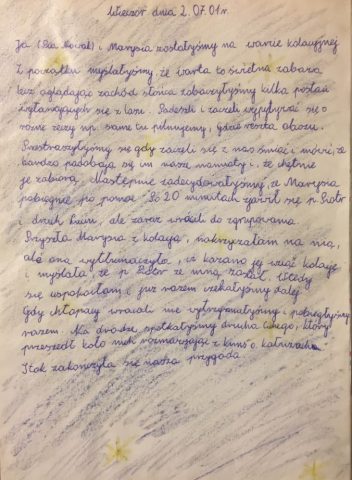 Wieczór dnia 2.07.01r.
Ja (Ela Nowak) i Marysia zostałyśmy na warcie kolacyjnej
Z początku myślałyśmy, że warta to świetna zabawa
lecz oglądając zachód słońca zobaczyłyśmy kilka postaci
wyłaniających się z lasu. Podeszli i zaczeli wypytywać się o
różne rzeczy np. same tu pilnujemy, gdzie reszta obozu.
Przestraszyłyśmy się gdy zaczeli się z nas śmiać i mówić, że
bardzo podobają się im nasze namioty i, że chętnie
je zabiorą. Następnie zadecydowałyśmy, że Marysia
pobiegnie po pomoc. Po 20 minutach zjawił się p. Piotr
i druh, ale zaraz wrócili do zgrupowania.
Przyszła Marysia z kolacją, nakrzyczałam na nią,
ale ona wytłumaczyła, iż kazano jej wziąć kolację
i myślała, że p. Piotr ze mną został. Wtedy
się uspokoiłam i już razem czekałyśmy dalej.
Gdy chłopacy wracali nie wytrzymałyśmy i pobiegłyśmy
razem. Na drodze spotkałyśmy druha, który
przeszedł koło nich rozmawiając z kimś o
I tak zakończyła się nasza przygoda.